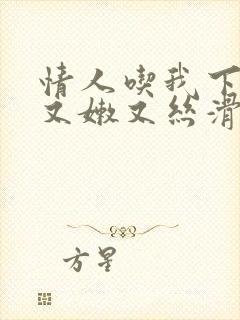 情人喫我下
又嫩又丝滑
方星